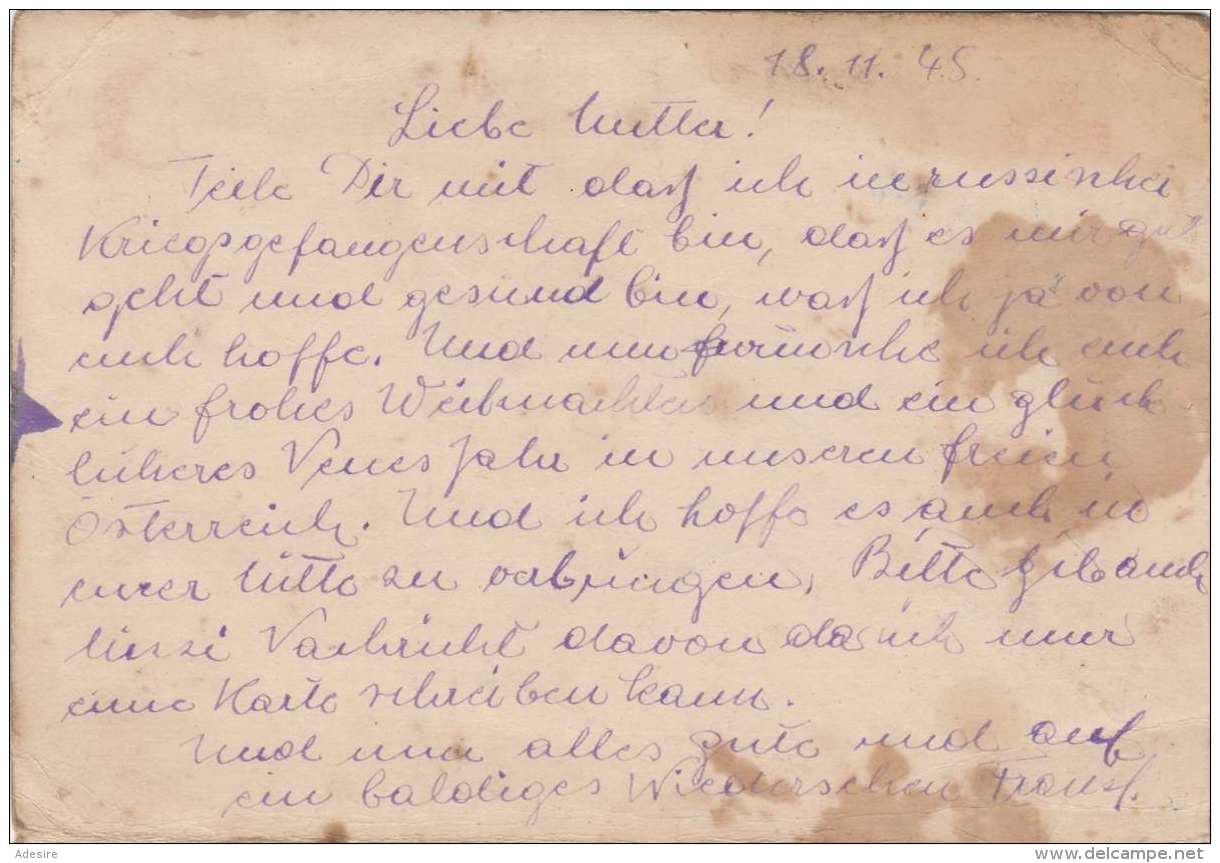 18. 11. 45.
Liebe Mutter!
Teile Dir mit dass ich in russischer
Kriegsgefangenschaft bin, dass es mir gut
geht und gesund bin, wass ich ja von
euch hoffe. Und nun wünsche ich euch
ein frohes Weihnachten und ein glück-
licheres Neues Jahr in unseren freien
Österreich. Und ich hoffe es auch in
eurer Mitte zu verbringen. Bitte gib auch
Nachricht davon da ich nur
eine Karte schreiben kann.
Und nun alles gute und auf
ein baldiges Wiedersehen Franz.
Adesire
delcampe.net